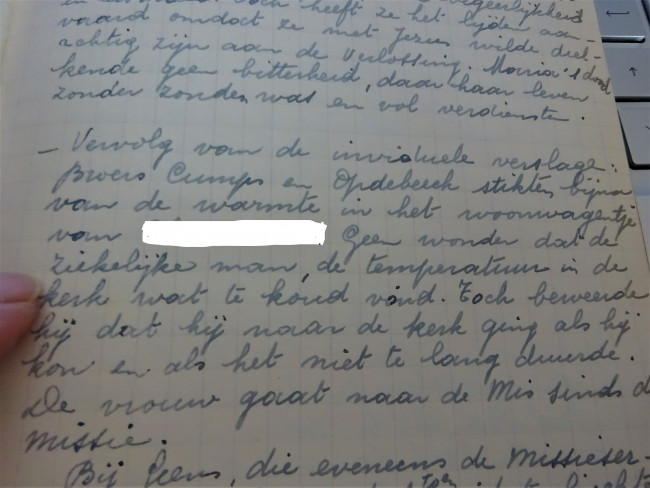 heeft ze het lijden aan-
vaard omdat ze met Jezus wilde deel-
achtig zijn aan de Verlossing. Maria's dood
kende geen bitterheid, daar haar leven
zonder zonden was en vol verdienste.
- Vervolg van de inviduele verslage:
Broers Cumps en Opdebeeck stikten bijna
van de warmte in het woonwagentje
van Geen wonder dat de
ziekelijke man, de temperatuur in de
kerk wat te koud vond. Toch beweerde
hij dat hij naar de kerk ging als hij
kon en als het niet te lang duurde.
De vrouw gaat naar de Mis sinds d
missie.
Bij Geens, die eveneens de Missieser-